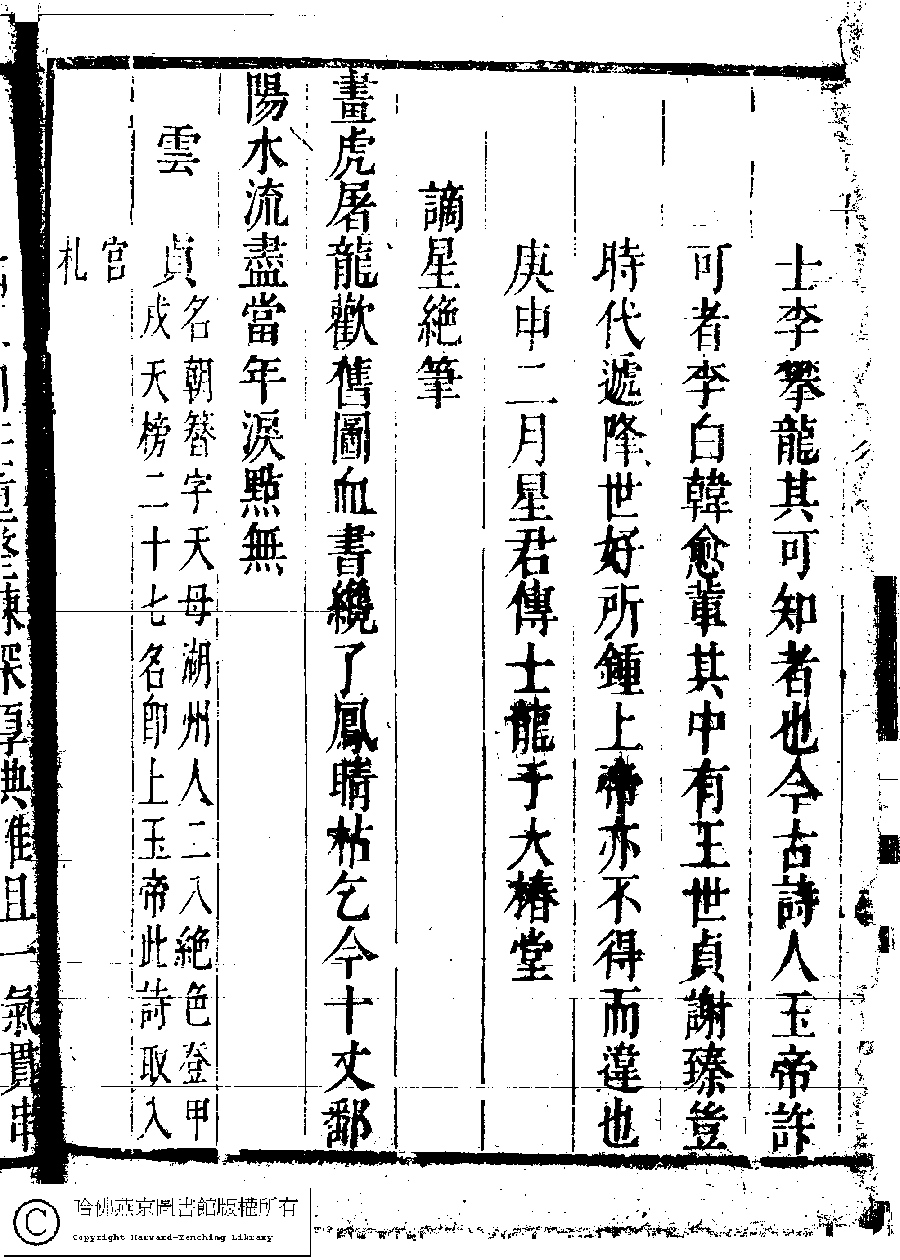 士李攀龍其可知者也今古詩人玉帝許
可者李白韓愈輩其中有王世貞謝臻豈
時代遞降世好所鍾上帝亦不得而違也
庚申二月星君傳士龍于大椿堂
謫星絶筆
畫虎屠龍歡舊圖血書纔了鳳睛枯乞今十丈鄱
陽水流盡當年淚點無
雲貞
名朝簪字天母湖州人二入絶色登甲
戍天榜二十七名卽上玉帝此詩取入
官
札
哈佛燕京圖書館版權所有
Copyright Harvard-Yenching Library